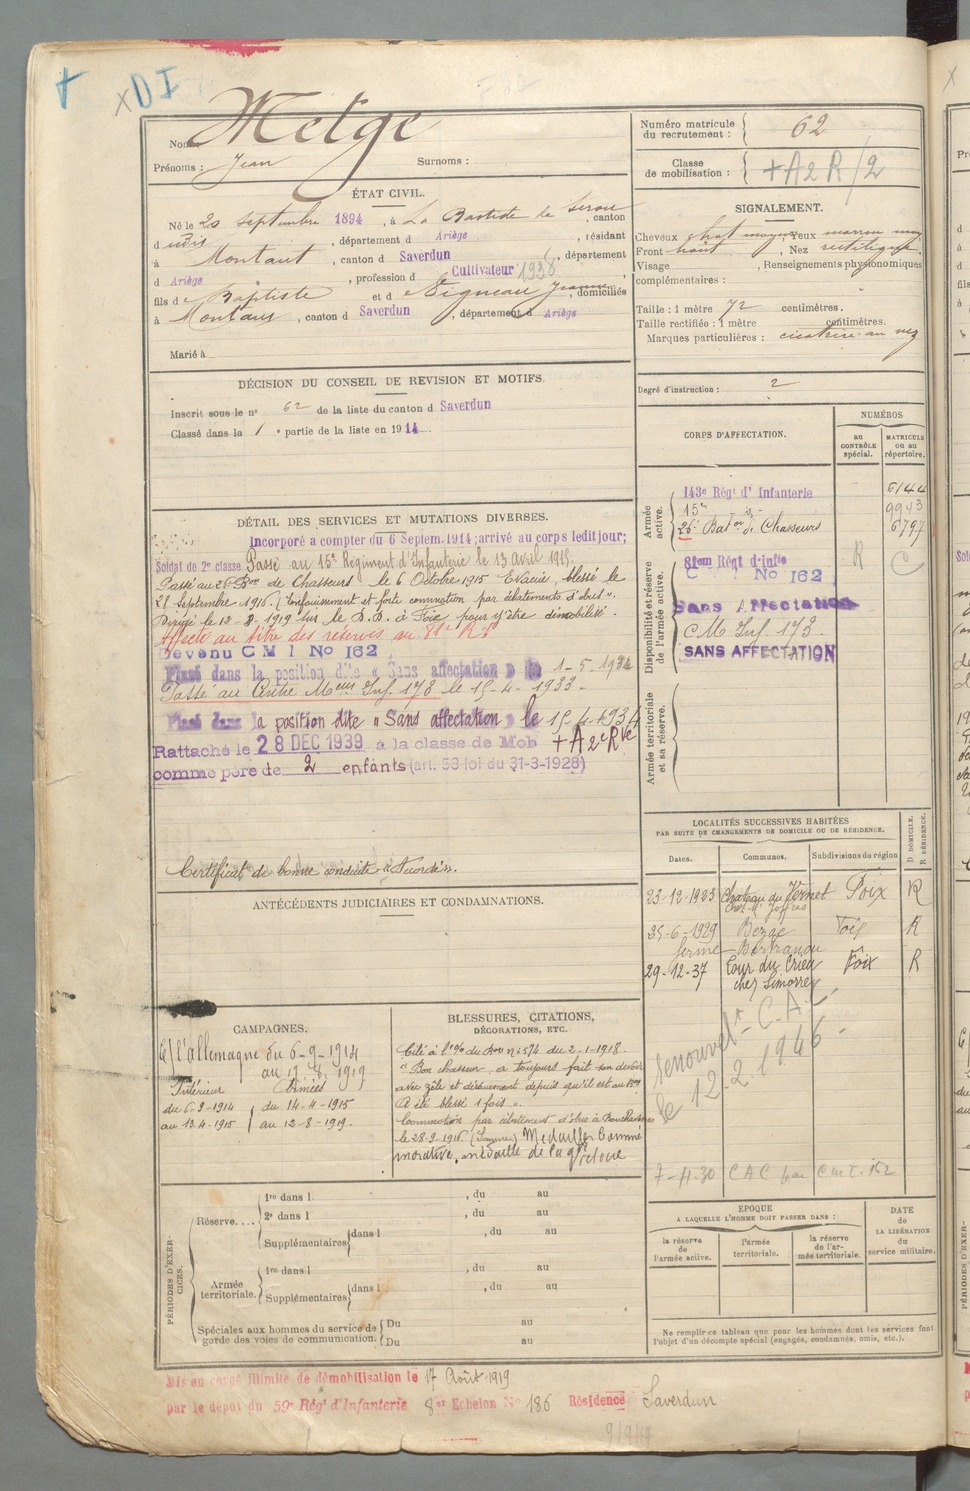 DI
Nom : Metge
Prénoms : Jean Surnoms :
ÉTAT CIVIL.
Né le 20 septembre 1894, à La Bastide de Serou, canton
d udis, département d Ariège, résidant
à Montaut, canton d Saverdun, département
d Ariège, profession d Cultivateur 1936,
fils de Baptiste et de Jeanne, domiciliés
à Montaut, canton d Saverdun, département d Ariège
Marié à
DÉCISION DU CONSEIL DE REVISION ET MOTIFS.
Inscrit sous le n° 62 de la liste du canton d Saverdun
Classé dans la 1e partie de la liste en 1914
DÉTAIL DES SERVICES ET MUTATIONS DIVERSES.
Incorporé a compter du 6 Septem. 1914; arrivé au corps ledit jour;
Soldat de 2e classe Passé au 15e Régiment d'Infanterie le 13 Avril 1915.
Passé au 26e Bon de Chasseurs le 6 Octobre 1915 Evacué, blessé le
28 Septembre 1916. (Enfouissement et forte commotion par éclatements d'obus".
Dirigé le 12-8-1919 sur le D.D. à Foix pour y être démobilisé.
Affecté au titre des réserves au 81e R.I
Devenu C M I No 162
Placé dans la position dite « Sans affectation » le 1-5-1932
Passé au Centre Meur Inf. 173 le 15-4-1933.
Placé dans la position dite « Sans affectation » le 15-4-1934
Rattaché le 28 DEC 1939 à la classe de Mob + A 2e Rve
comme père de 2 enfants (art. 58 loi du 31-3-1928)
Certificat de bonne conduite "Accordé".
ANTÉCÉDENTS JUDICIAIRES ET CONDAMNATIONS.
CAMPAGNES.
C/ l'allemagne du 6-9-1914
au 12-8-1919
Intérieur Armées
du 6-9-1914 du 14-4-1915
au 13.4-1915 au 12-8-1919.
BLESSURES, CITATIONS,
DÉCORATIONS, ETC.
Cité à l'o/ du Bon n° 574 du 2-1-1918.
"Bon chasseur, a toujours fait son devoir
avec zèle et dévouement depuis qu'il est au Bon
A été blessé 1 fois".
Commotion par éclatement d'obus à Bouchavesnes
le 28-9-1916 (Somme) Médaille Commé
morative, médaille de la gde Victoire
PÉRIODES D'EXERCICES.
Réserve....
1re dans l , du au
2e dans l , du au
Supplémentaires dans l , du au
Armée territoriale.
1re dans l , du au
Supplémentaires dans l , du au
Spéciales aux hommes du service de garde des voies de communication.
Du au
Du au
Numéro matricule du recrutement : 62
Classe de mobilisation : +A2R/2
SIGNALEMENT.
Cheveux chat moyen, Yeux marron moy
Front haut, Nez rectiligne
Visage , Renseignements physionomiques
complémentaires :
Taille : 1 mètre 72 centimètres.
Taille rectifiée : 1 mètre centimètres.
Marques particulières : cicatrice au nez
Degré d'instruction : 2
CORPS D'AFFECTATION.
NUMÉROS
au CONTRÔLE spécial.
MATRICULE ou au répertoire.
Armée active.
143e Régt d'Infanterie 6144
15e - is - 9943
26e Baton de Chasseurs 6797
Disponibilité et réserve de l'armée active.
81em Régt d'Infie R C
C No 162
Sans Affectation
CM Inf. 173.
SANS AFFECTATION
Armée territoriale et sa réserve.
LOCALITÉS SUCCESSIVES HABITÉES
PAR SUITE DE CHANGEMENTS DE DOMICILE OU DE RÉSIDENCE.
Dates. Communes. Subdivisions de région D. DOMICILE. R. RÉSIDENCE.
23-12-1923 Chateau du Vernet Foix R
chez Mr Joffres
25-6-1929 Bezac Foix R
ferme Bertranou
29-12-37 Tour du Crieu Foix R
chez Simorre
renouvelt C.A.C
le 12.2.1946
7-11-30 C A C par C m I. 162
EPOQUE
A LAQUELLE L'HOMME DOIT PASSER DANS :
la réserve de l'armée active.
l'armée territoriale.
la réserve de l'armée territoriale.
DATE de LA LIBÉRATION du service militaire.
Ne remplir ce tableau que pour les hommes dont les services font
l'objet d'un décompte spécial (engagés, condamnés, omis, etc.).
Mis en congé illimité de démobilisation le 17 Août 1919
par le dépôt du 59e Régt d'Infanterie 8er Echelon No 186 Résidence Saverdun